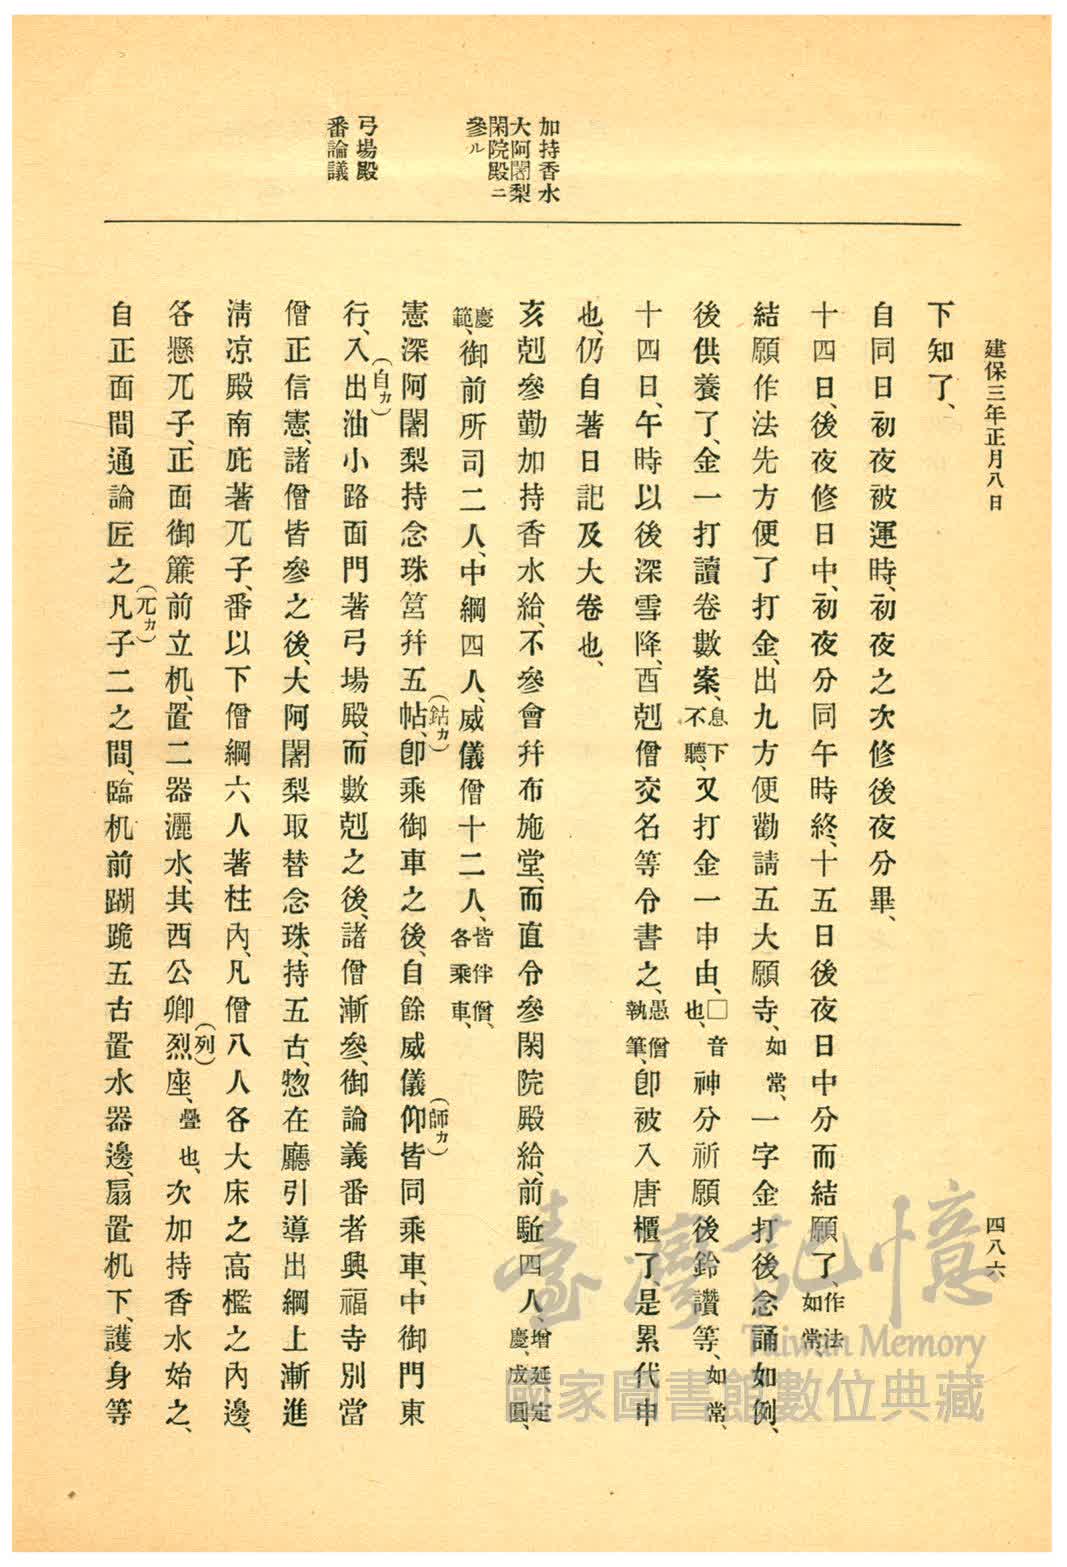 建保三年正月八日
四八六
加持香水
大阿闍梨
閑院殿ニ
參ル
弓場殿
番論議
下知了、
自同日初夜被運時、初夜之次修後夜分畢、
十四日、後夜修日中、初夜分同午時終、十五日後夜日中分而結願了、作法如常、
結願作法先方便了打金、出九方便勸請五大願寺、如常、一字金打後念誦如例、
後供養了、金一打讀卷數案、息下不聽、又打金一申由、□音也、神分祈願後鈴讚等、如常、
十四日、午時以後深雪降、酉剋僧交名等令書之、愚僧執筆、卽被入唐櫃了、是累代申
也、仍自著日記及大卷也、
亥剋參勤加持香水給、不參會幷布施堂、而直令參閑院殿給、前駈四人、增延、定慶、成圓、
慶範、御前所司二人、中綱四人、威儀僧十二人、皆伴僧、各乘車、
憲深阿闍梨持念珠筥幷五帖、(鈷カ)卽乘御車之後、自餘威儀仰(師カ)皆同乘車、中御門東
行、入(自カ)出油小路面門著弓場殿、而數剋之後、諸僧漸參、御論義番者興福寺別當
僧正信憲、諸僧皆參之後、大阿闍梨取替念珠、持五古、惣在廳引導出綱上漸進
淸凉殿南庇著兀子、番以下僧綱六人著柱內、凡僧八人各大床之高檻之內邊、
各懸兀子、正面御簾前立机、置二器灑水、其西公卿烈(列)座、疊也、次加持香水始之、
自正面間通論匠之凡(兀カ)子二之間、臨机前蹴跪五古置水器邊、扇置机下、護身等
臺灣記憶
Taiwan Memory
國家圖書館數位典藏